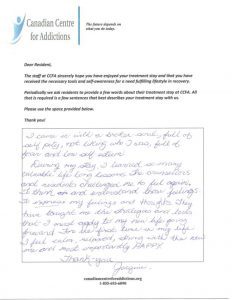 Canadian Centre
for Addictions
The future depends on
what you do today.
Dear Resident,
The staff at CCFA sincerely hope you have enjoyed your treatment stay and that you have
received the necessary tools and self-awareness for a more fulfilling lifestyle in recovery.
Periodically we ask residents to provide a few words about their treatment stay at CCFA. All
that is required is a few sentences that best describes your treatment stay with us.
Please use the space provided below.
Thank you!
I came in with a broken soul, full of
self pity, not liking who I was, full of
fear and low self esteem.
During my stay, I learned so many
valuable life long lessons. The counsellors
and residents challenged me to feel again,
to think and understand those feelings
to express my feelings and thoughts. They
have taught me the strategies and tools
that I must apply to my new life going
forward. For the first time in my life
I feel calm, relaxed, strong with the new
me and most importantly HAPPY.
Thank you,
canadiancentreforaddictions.org
1-855-692-6090